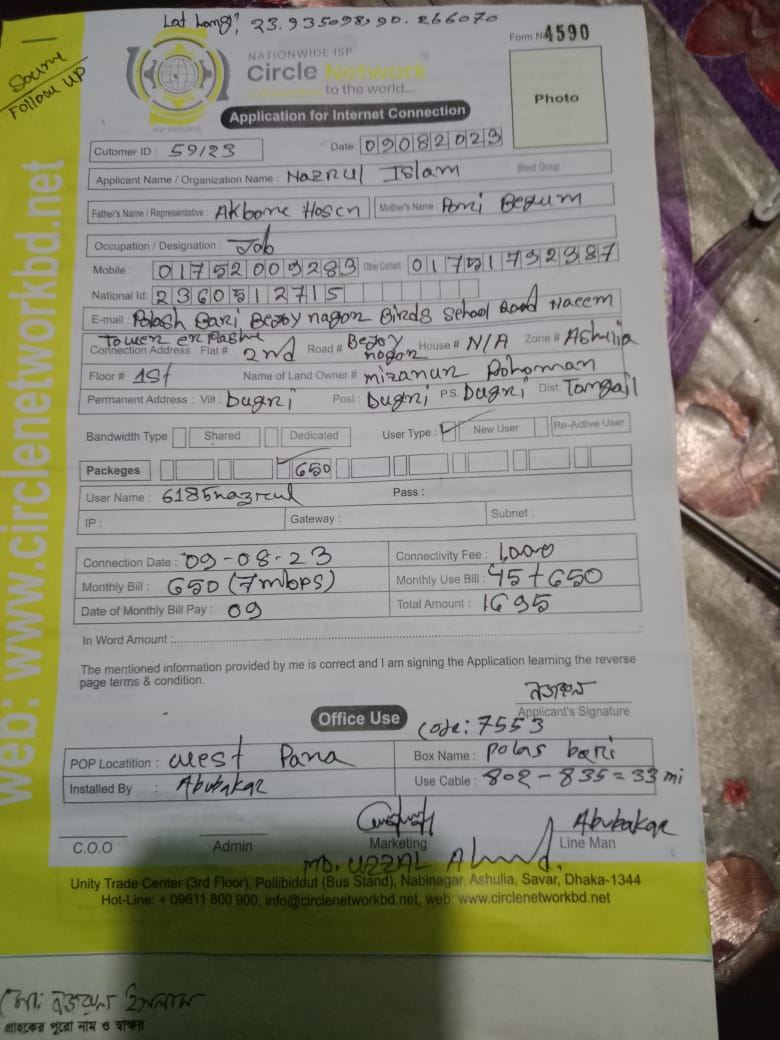 Lat Long: 23.935098,90.266070
Form No 4590
Follow UP
NATIONWIDE ISP
Circle Network
Connecting to the world....
Photo
Application for Internet Connection
Cutomer ID : 59123
Date 09082023
Applicant Name / Organization Name : Nazrul Islam Blood Group :
Father's Name / Representative : Akbore Hosen Mother's Name : Begum
Occupation / Designation : Job
Mobile : 01752009283 Other Contact : 01751732387
National Id: 2360512715
E-mail : Polash Bari Bejoy nagor Birds School Road Naeem
Tower er Pashe
Connection Address : Flat # 2nd Road # Bejoy nogor House # N/A Zone # Ashulia
Floor # 1st Name of Land Owner # mizanur Rohoman
Permanent Address : Vill : Dugri Post : Dugri P.S. Dugri Dist: Tangail
Bandwidth Type Shared Dedicated User Type : New User Re-Active User
Packeges 650
User Name : 6185nazrul Pass :
IP : Gateway : Subnet :
Connection Date : 09-08-23 Connectivity Fee : 1,000
Monthly Bill : 650 (7mbps) Monthly Use Bill : 45+650
Date of Monthly Bill Pay : 09 Total Amount : 1695
In Word Amount :
The mentioned information provided by me is correct and I am signing the Application learning the reverse
page terms & condition.
নজরুল
Applicant's Signature
Office Use
Code: 7553
POP Locatition : West Para Box Name : Polas bari
Installed By : Abubakar Use Cable : 802-835=33 mi
Abubakar
C.O.O Admin Marketing Line Man
MD. UZZAL Ahmed.
Unity Trade Center (3rd Floor), Pollibiddut (Bus Stand), Nabinagar, Ashulia, Savar, Dhaka-1344
Hot-Line: + 09611 800 900, info@circlenetworkbd.net, web: www.circlenetworkbd.net
web: www.circlenetworkbd.net
মো: নজরুল ইসলাম
গ্রাহকের পুরো নাম ও স্বাক্ষর